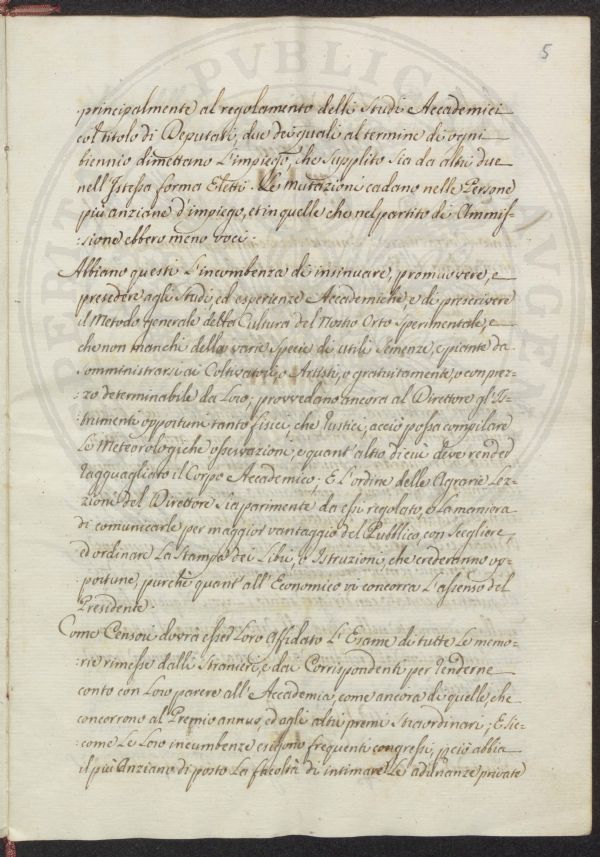 5
principalmente al regolamento delli Studi e Accademici
col titolo di Deputati, due dei quali al termine di ogni
biennio dimettano l'impiego, che supplito sia da altri due
nell'Istessa forma Eletti. Le mutazioni cadano nelle Persone
più anziane d'impiego, et in quelle che nel partito di Ammis-
:sione ebbero meno voci.
Abbiano questi l'incombenza di insinuare, promuovere, e
presedere agli Studi, ed esperienze Accademiche, e di prescrivere
il Metodo generale della Cultura del Nostro Orto Sperimentale, e
che non manchi delle varie specie di utili semenze, e piante da
somministrarsi ai Coltivatori, o Artisti, o gratuitamente, o con prez-
:zo determinabile da Loro; provvedano ancora al Direttore gl'Is-
:trumenti opportuni tanto fisici, che rustici, acciò possa compilare
le Meteorologiche osservazioni, e quant'altro di cui deve render
ragguagliato il Corpo Accademico; E l'ordine delle Agrarie Lez-
:zioni del Direttore sia parimente da essi regolato, e la maniera
di comunicarle per maggior vantaggio del Pubblico, con scegliere,
ed ordinare la stampa dei Libri, o Istruzioni, che crederanno op-
:portune, purchè quant'all'Economico vi concorra l'assenso del
Presidente.
Come Censori dovrà esser Loro affidato l'Esame di tutte le memo-
:rie rimesse dalli Stranieri, e dai Corrispondenti per renderne
conto con Loro parere all'Accademia, come ancora di quelle, che
concorrono al Premio annuo, ed agli altri premi straordinari; E sic-
:come le Loro incumbenze esigono frequenti congressi, perciò abbia
il più Anziano di posto la facoltà di intimare le adunanze private